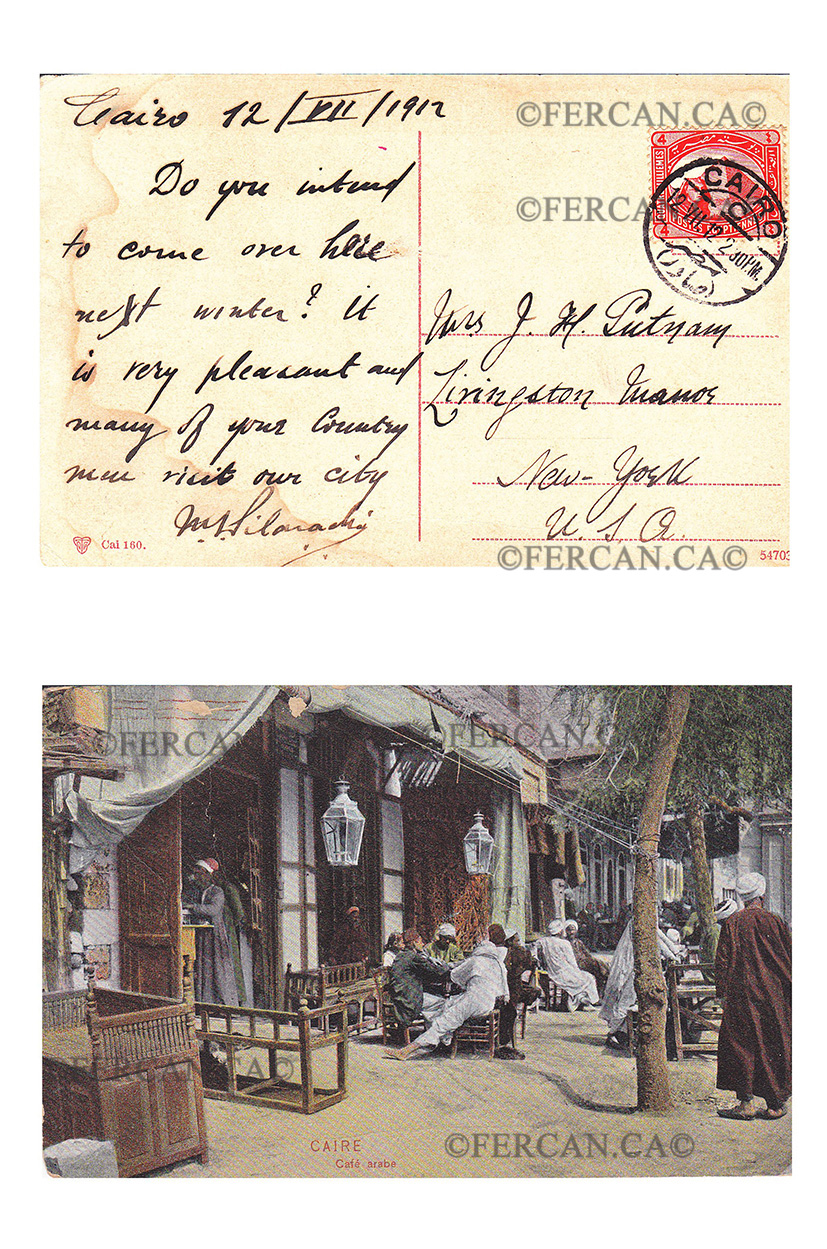 Cairo 12/VII/1912
©FERCAN.CA©
Do you intend
to come over here
next winter? It
is very pleasant and
many of your Country
men visit our city
Cai 160.
4
4
4
CAIRO
12 VII 12 2 30 PM.
©FERCAN.CA©
Mrs J. H. Putnam
Livingston Manor
New-York
U. S. A.
©FERCAN.CA©
54703
©FERCAN.CA©
©FERCAN.CA©
©FERCAN.CA©
©FERCAN.CA©
CAIRE
Café arabe
©FERCAN.CA©